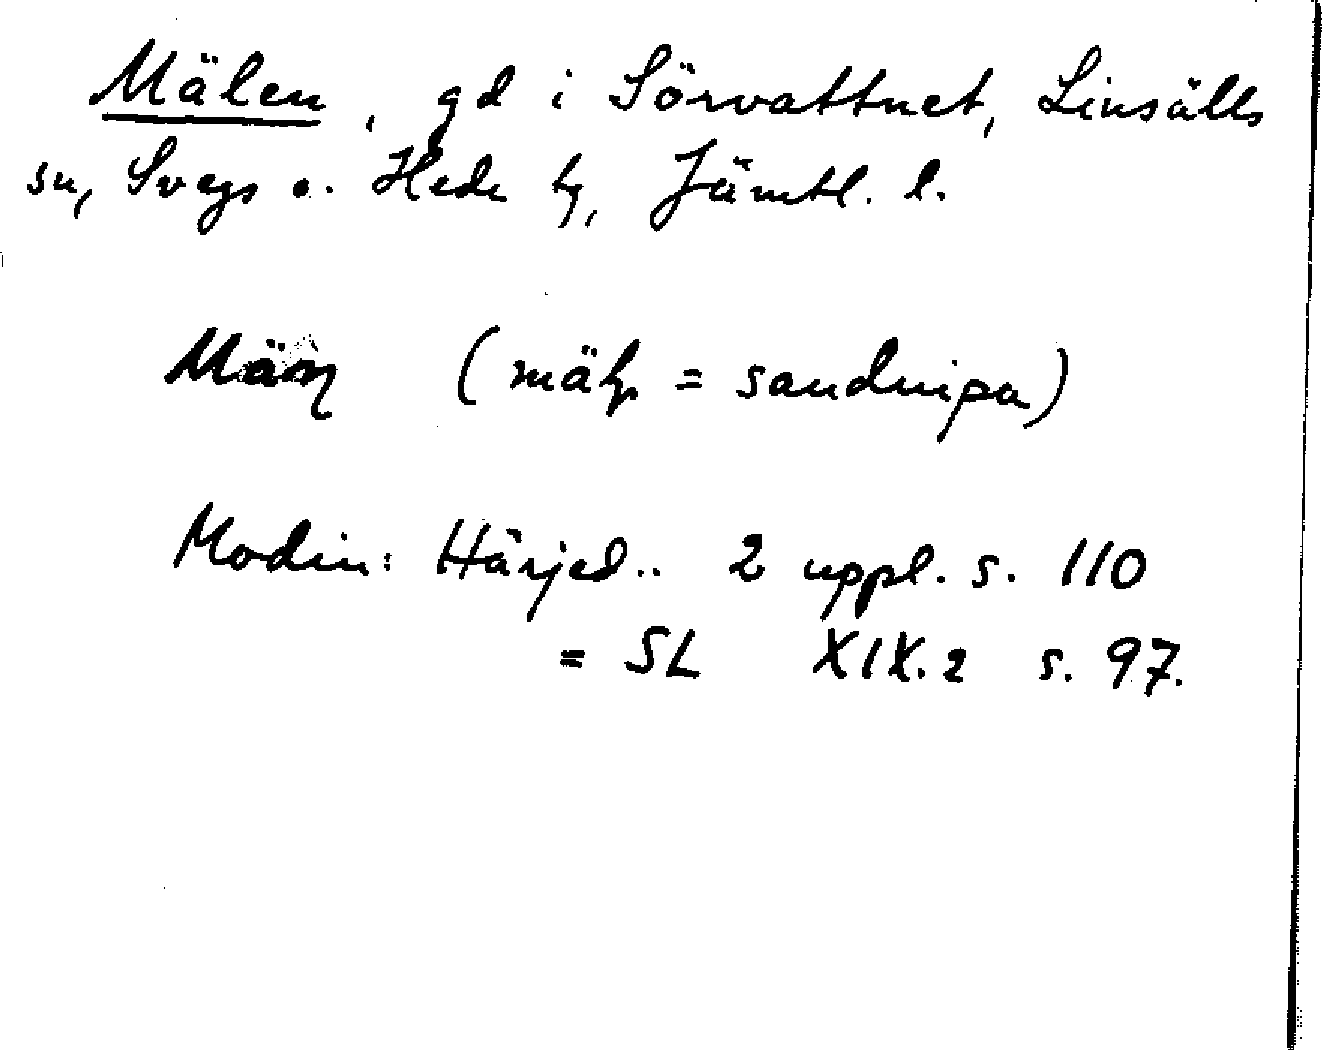 Mälen, gd i Sörvattnet, Linsälls
sn, Svegs o. Hede tg, Jämtl. l.
( = sandnipa)
Modin: Härjed.. 2 uppl. s. 110
= SL XIX.2 s. 97.